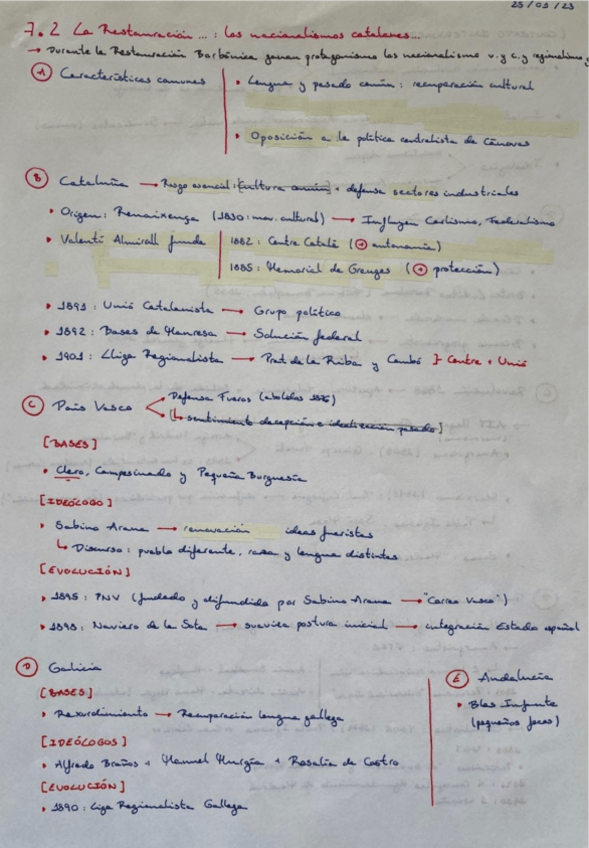 25/01/23
7.2 La Restauración ... : los nacionalismos catalanes...
→ Durante la Restauración Borbónica ganan protagonismo los nacionalismo v. y c. y regionalismo g
A Características comunes
• Lengua y pasado común: recuperación cultural
• Oposición a la política centralista de Cánovas
B Cataluña → Rasgo esencial: [cultura común] + defensa sectores industriales
• Origen: Renaixença (1830: mov. cultural) → Influyen Carlismo, Federalismo
• Valentí Almirall funda
1882: Centre Català (→ autonomía)
1885: Memorial de Greuges (→ protección)
• 1891: Unió Catalanista → Grupo político
• 1892: Bases de Manresa → Solución federal
• 1901: Lliga Regionalista → Prat de la Riba y Cambó } Centre + Unió
C País Vasco
Defensa Fueros (abolidos 1876)
[↳ sentimiento decepción e idealización pasado]
[BASES]
• Clero, Campesinado y Pequeña Burguesía
[IDEÓLOGO]
• Sabino Arana → renovación ideas fueristas
↳ Discurso: pueblo diferente, raza y lengua distintas
[EVOLUCIÓN]
• 1895: PNV (fundado y difundido por Sabino Arana → "Correo Vasco")
• 1898: Naviero de la Sota → suaviza postura inicial → integración Estado español
D Galicia
[BASES]
• Rexurdimiento → Recuperación lengua gallega
[IDEÓLOGOS]
• Alfredo Brañas + Manuel Murgía + Rosalía de Castro
[EVOLUCIÓN]
• 1890: Liga Regionalista Gallega
E Andalucía
• Blas Infante
(pequeños focos)